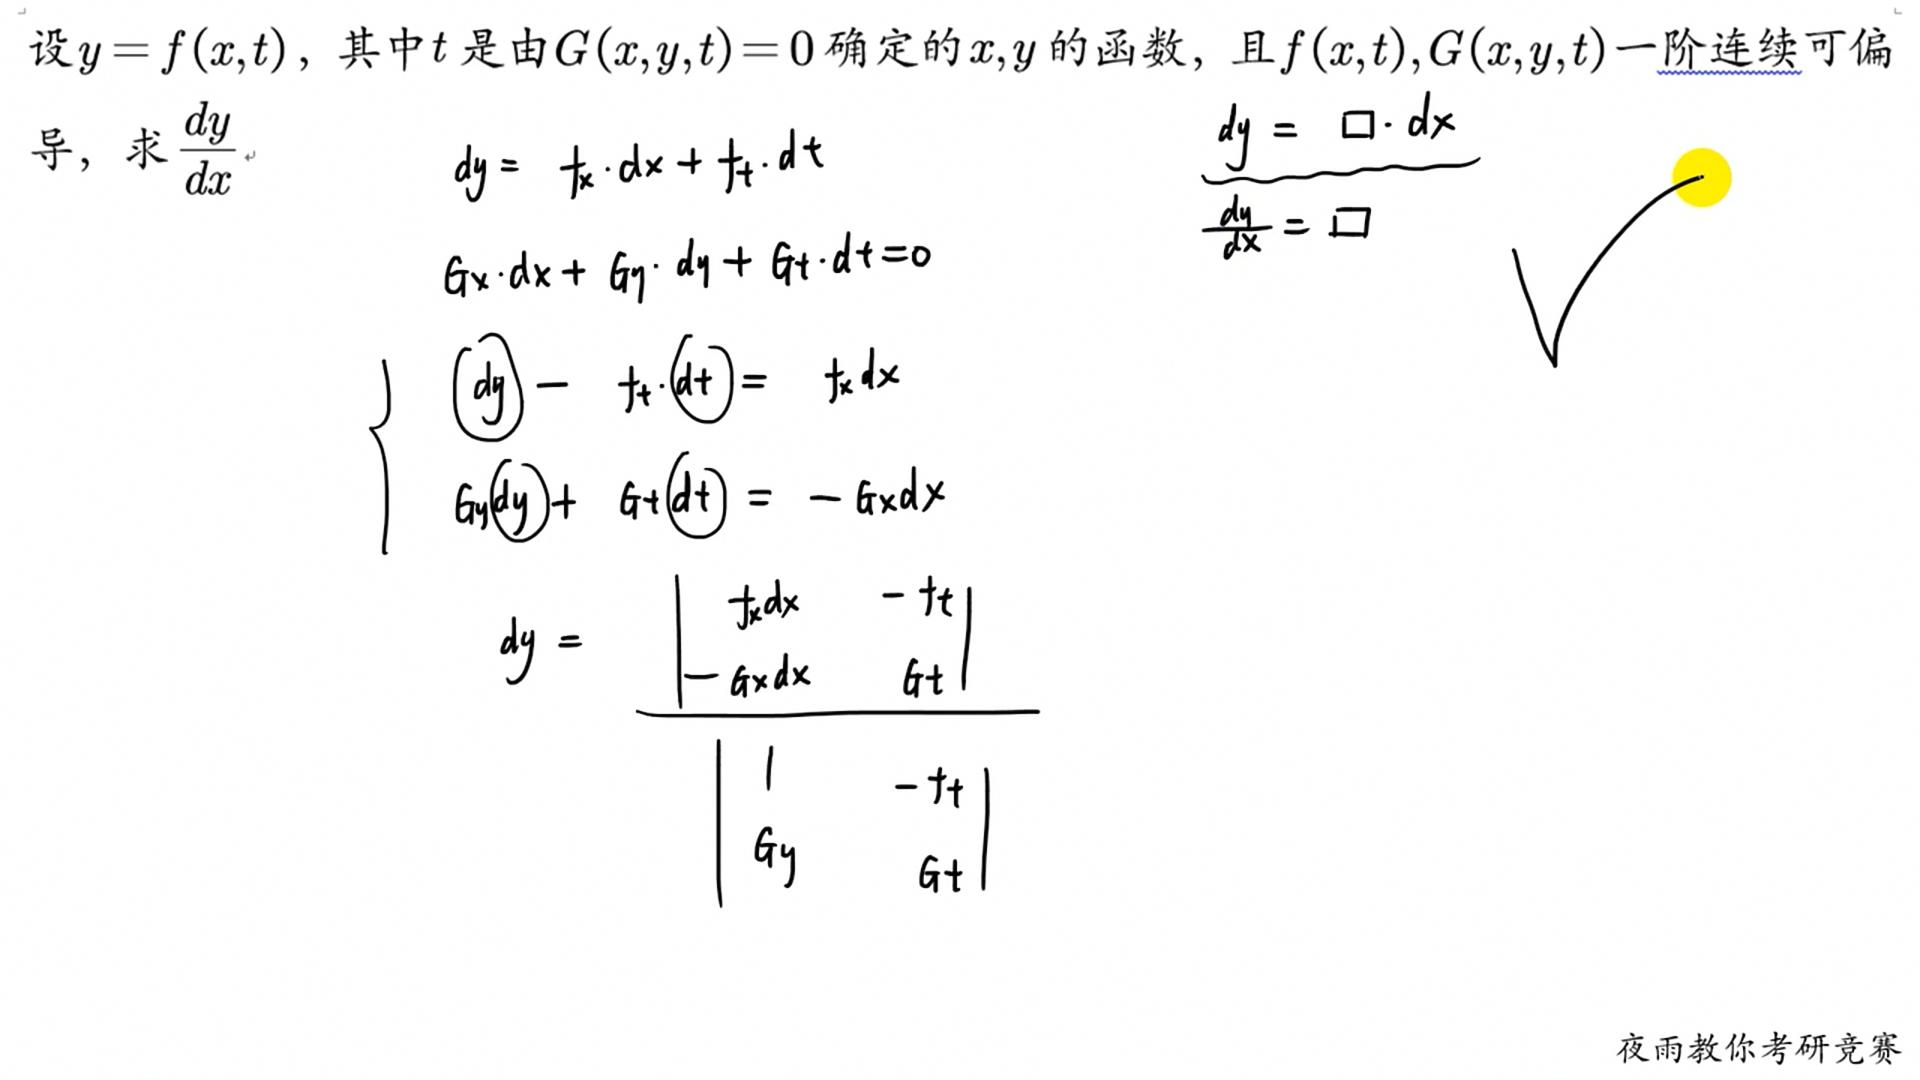 设y=f(x,t)，其中t是由G(x,y,t)=0确定的x,y的函数，且f(x,t),G(x,y,t)一阶连续可偏
导，求dy/dx.
dy = fx·dx + ft·dt
Gx·dx + Gy·dy + Gt·dt=0
dy - ft·dt = fxdx
Gydy + Gtdt = - Gxdx
dy = | fxdx -ft |
| -Gxdx Gt |
| 1 -ft |
| Gy Gt |
dy = □·dx
dy/dx = □
夜雨教你考研竞赛